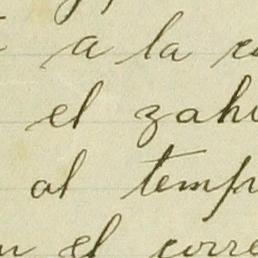 a la
el zah
al temp
el corre